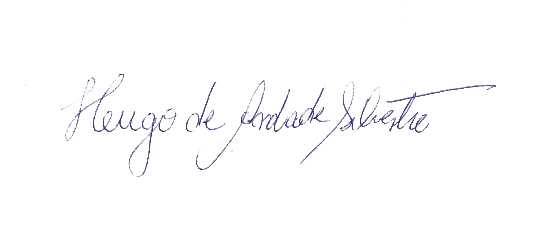 Hugo de Andrade Silvestre